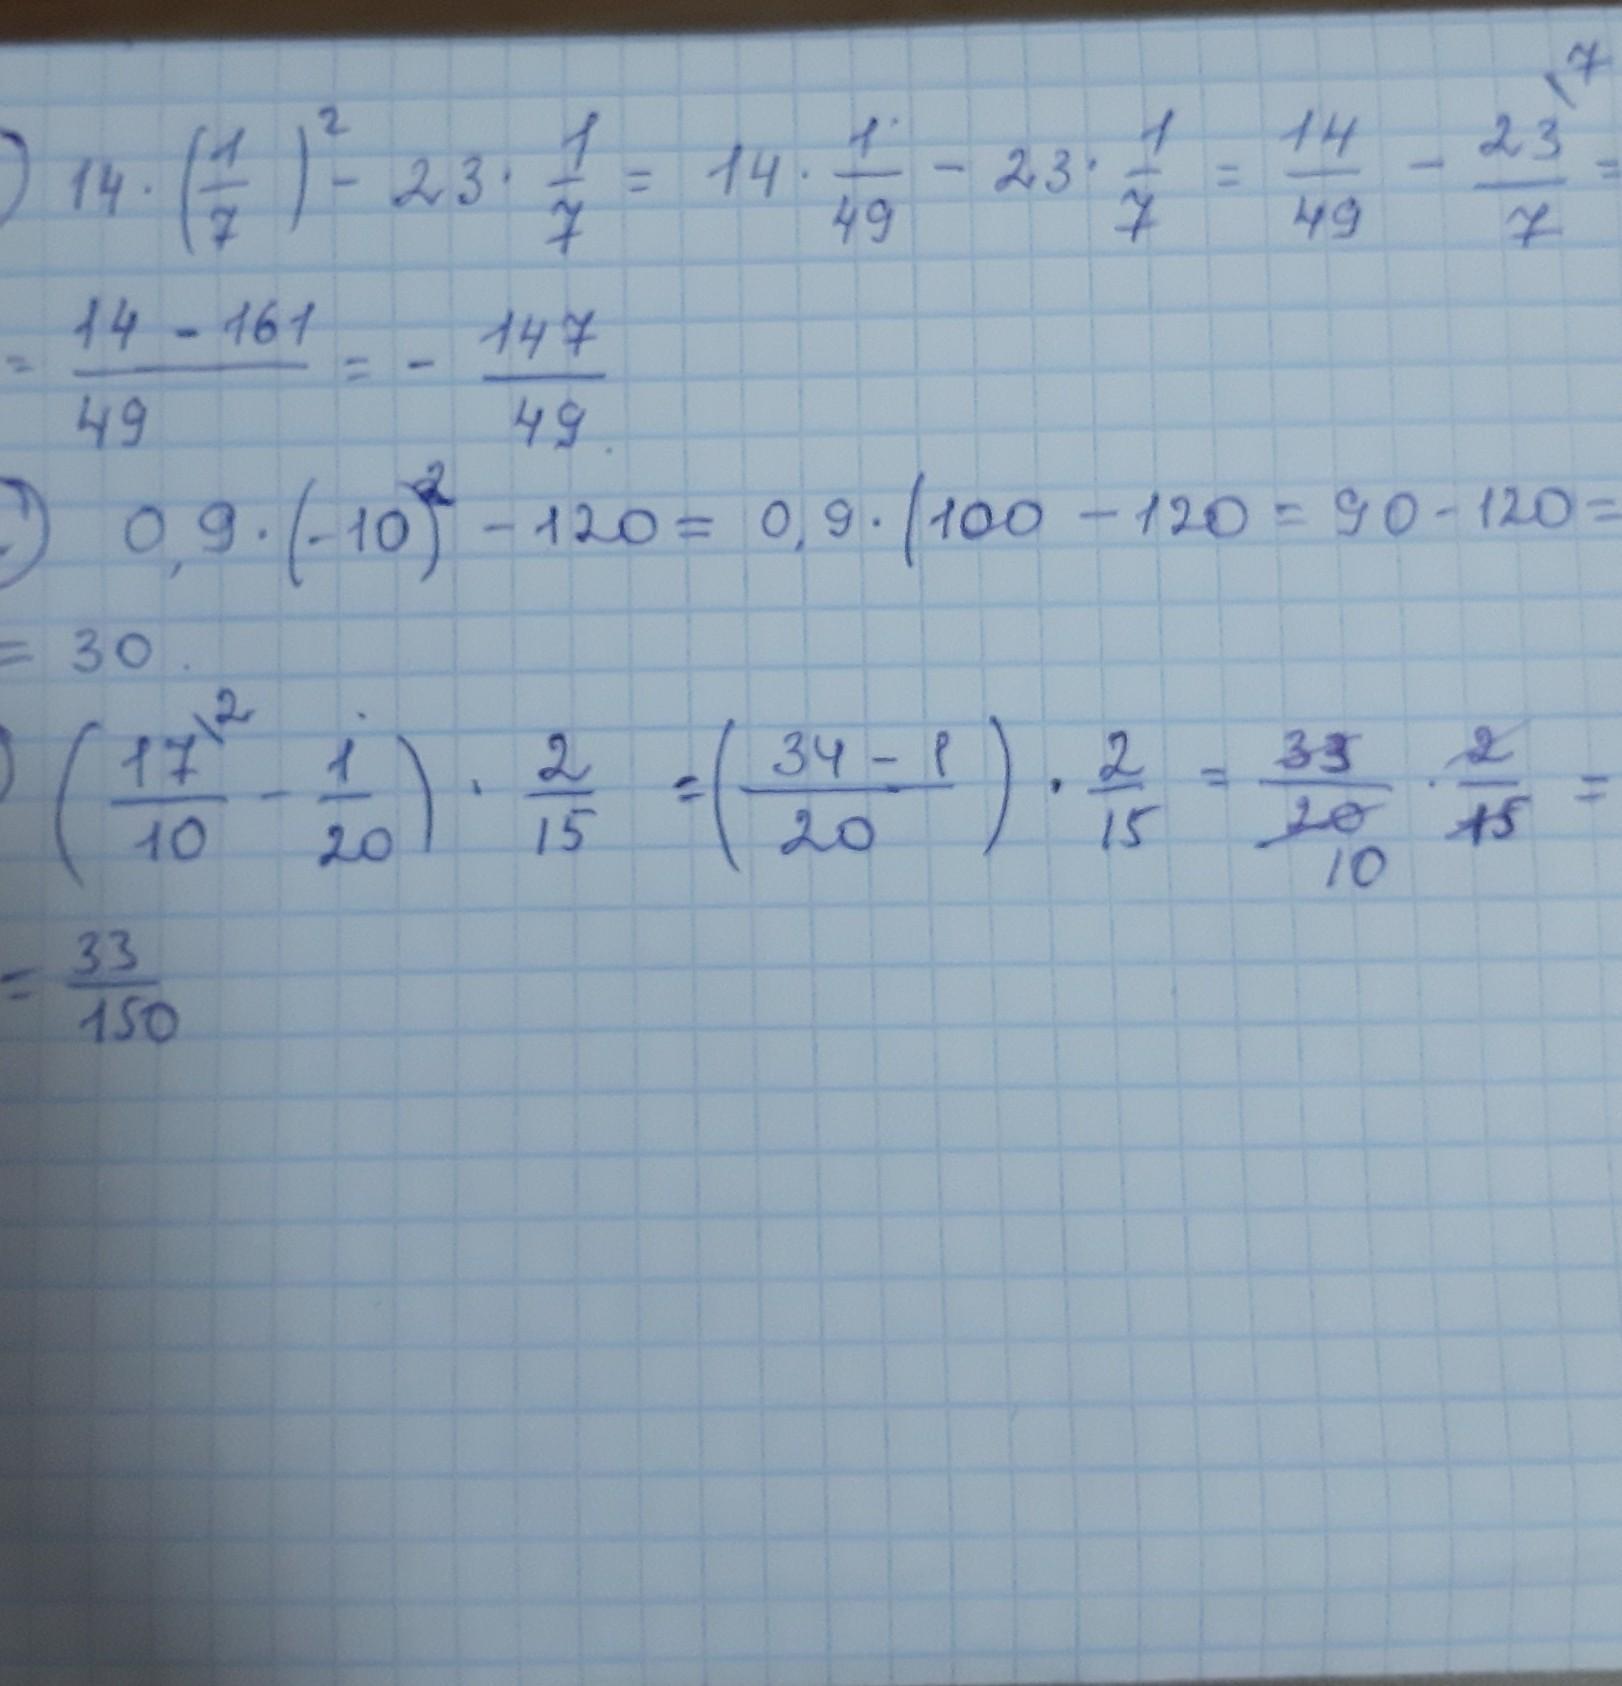 ) 14 · (1/7)² - 23 · 1/7 = 14 · 1/49 - 23 · 1/7 = 14/49 - 23/7 \7 =
= (14 - 161)/49 = - 147/49.
) 0,9 · (-10)² - 120 = 0,9 · (100 - 120 = 90 - 120 =
= 30.
) (17/10 \2 - 1/20) · 2/15 = ((34 - 1)/20) · 2/15 = 33/20 10 · 2/15 =
= 33/150